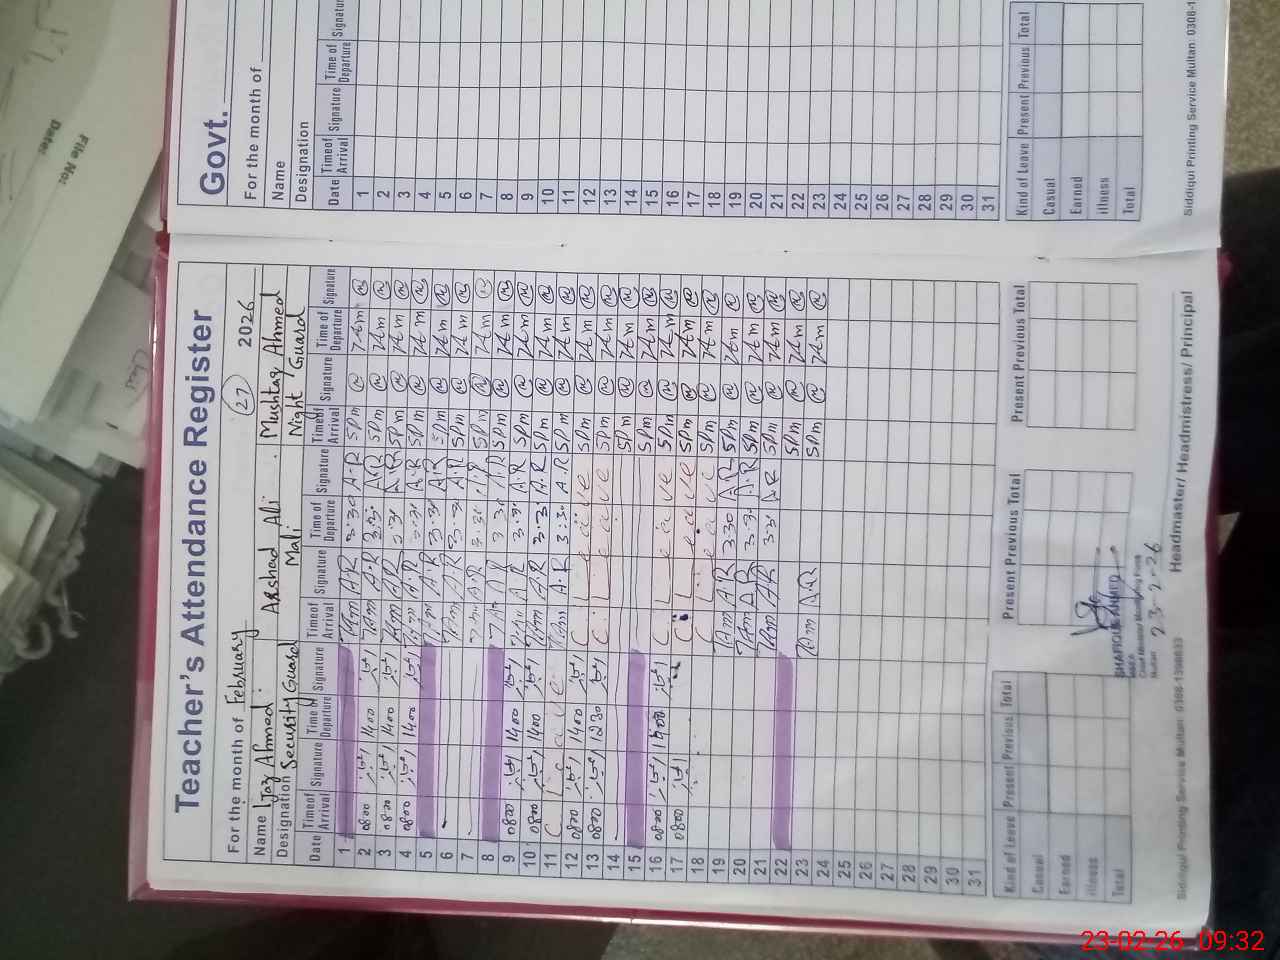 Teacher's Attendance Register
For the month of February (27) 2026
Name Ijaz Ahmed Arshad Ali Mushtaq Ahmed
Designation Security Guard Mali Night Guard
Date Time of Arrival Signature Time of Departure Signature Time of Arrival Signature Time of Departure Signature Time of Arrival Signature Time of Departure Signature
1 7Am A.R 3:30 A.R 5Pm 7Am
2 0800 1400 7Am A.R A.R 5Pm 7Am
3 0800 1400 7Am A.R A.R 5Pm 7Am
4 0800 1400 7Am A.R A.R 5Pm 7Am
5 A.R A.R 5Pm 7Am
6 7Am A.R A.R 5Pm 7Am
7 A.R 5Pm 7Am
8 A.R 5Pm 7Am
9 0800 1400 A.R A.R 5Pm 7Am
10 0800 1400 7Am A.R A.R 5Pm 7Am
11 C. Leave 7Am A.R 3:30 A.R 5Pm 7Am
12 0800 1400 C. Leave 5Pm 7Am
13 0800 1230 C. Leave 5Pm 7Am
14 5Pm 7Am
15 5Pm 7Am
16 0800 1400 C. Leave 5Pm 7Am
17 0800 C. Leave 5Pm 7Am
18 C. Leave 5Pm 7Am
19 7Am A.R 3:30 A.R 5Pm 7Am
20 7Am A.R A.R 5Pm 7Am
21 7Am A.R A.R 5Pm 7Am
22 5Pm 7Am
23 7Am A.R 5Pm 7Am
24
25
26
27
28
29
30
31
Kind of Leave Present Previous Total Present Previous Total Present Previous Total
Casual
Earned
illness
Total
SHAFIQUE AHMED
Multan
23-2-26
Siddiqui Printing Service Multan: 0308-1398633 Headmaster/ Headmistress/ Principal
Govt.
For the month of
Name
Designation
Date Time of Arrival Signature Time of Departure Signature
1
2
3
4
5
6
7
8
9
10
11
12
13
14
15
16
17
18
19
20
21
22
23
24
25
26
27
28
29
30
31
Kind of Leave Present Previous Total
Casual
Earned
illness
Total
Siddiqui Printing Service Multan: 0308-1
File No:
Date:
23-02-26 09:32